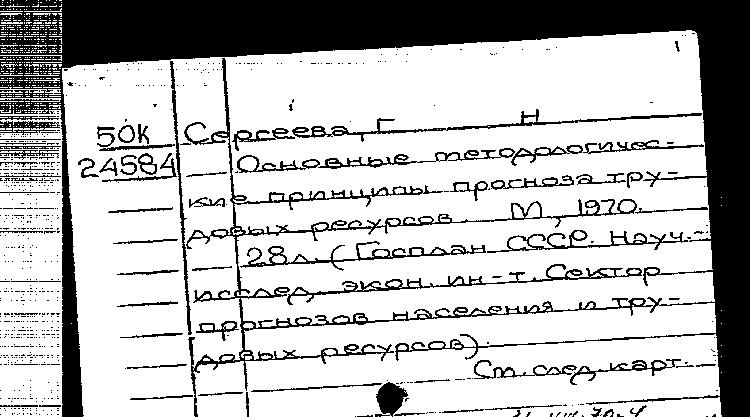 1
50К Сергеева, Г Н
24584 Основные методологичес=
кие принципы прогноза тру-
довых ресурсов. М, 1970.
28л. (Госплан СССР. Науч.-
исслед. экон. ин-т. Сектор
прогнозов населения и тру-
довых ресурсов).
См. след. карт.